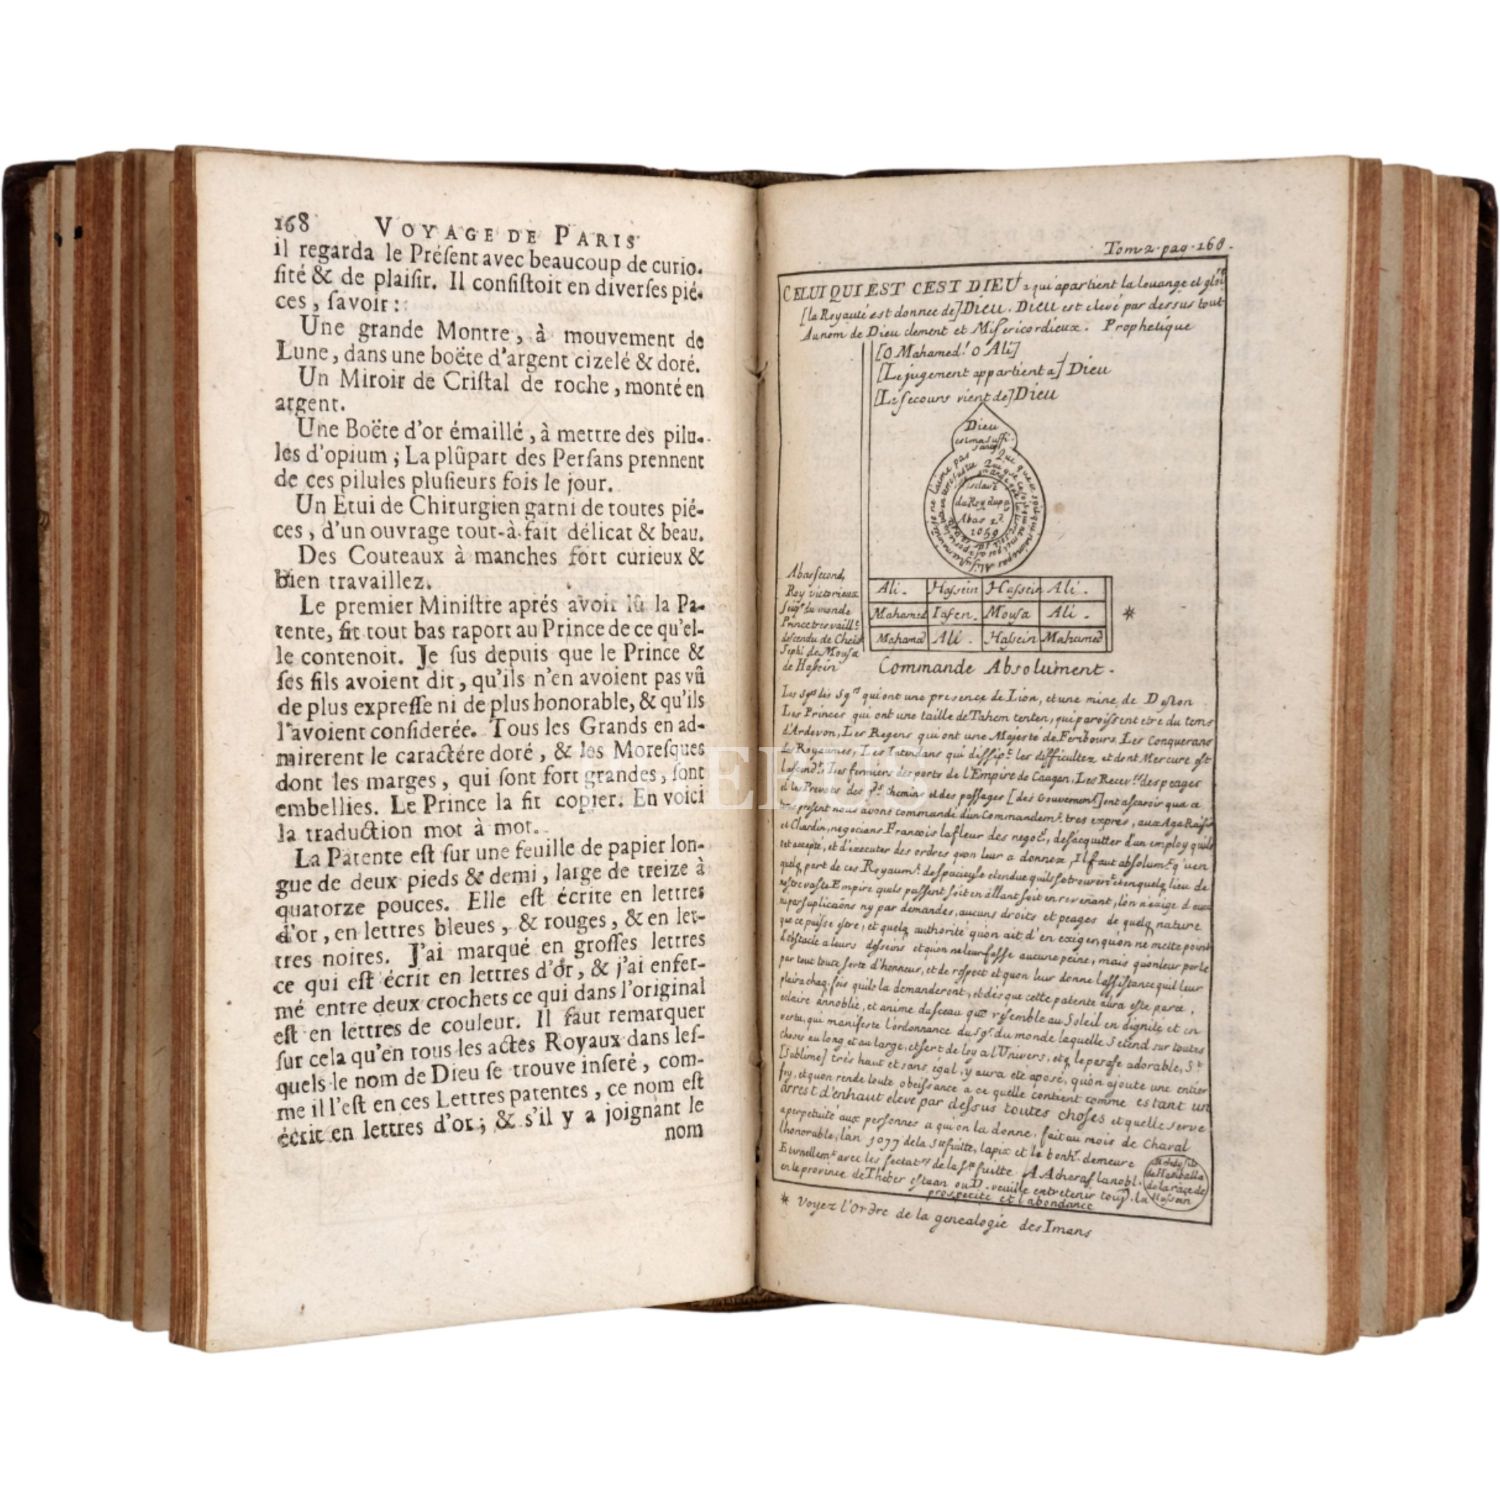 168 VOYAGE DE PARIS
il regarda le Préſent avec beaucoup de curio-
ſité & de plaiſir. Il conſiſtoit en diverſes pié-
ces, ſavoir:
Une grande Montre, à mouvement de
Lune, dans une boëte d'argent cizelé & doré.
Un Miroir de Criſtal de roche, monté en
argent.
Une Boëte d'or émaillé, à mettre des pilu-
les d'opium; La plûpart des Perſans prennent
de ces pilules pluſieurs fois le jour.
Un Etui de Chirurgien garni de toutes pié-
ces, d'un ouvrage tout-à-fait délicat & beau.
Des Couteaux à manches fort curieux &
bien travaillez.
Le premier Miniſtre aprés avoir lû la Pa-
tente, fit tout bas raport au Prince de ce qu'el-
le contenoit. Je ſus depuis que le Prince &
ſes fils avoient dit, qu'ils n'en avoient pas vû
de plus expreſſe ni de plus honorable, & qu'ils
l'avoient conſiderée. Tous les Grands en ad-
mirerent le caractére doré, & les Moreſques
dont les marges, qui ſont fort grandes, ſont
embellies. Le Prince la fit copier. En voici
la traduction mot à mot.
La Patente eſt ſur une feuille de papier lon-
gue de deux pieds & demi, large de treize à
quatorze pouces. Elle eſt écrite en lettres
d'or, en lettres bleues, & rouges, & en let-
tres noires. J'ai marqué en groſſes lettres
ce qui eſt écrit en lettres d'or, & j'ai enfer-
mé entre deux crochets ce qui dans l'original
eſt en lettres de couleur. Il faut remarquer
ſur cela qu'en tous les actes Royaux dans leſ-
quels le nom de Dieu ſe trouve inſeré, com-
me il l'eſt en ces Lettres patentes, ce nom eſt
écrit en lettres d'or; & s'il y a joignant le
nom
Tom 2. pag. 168.
CELUI QUI EST C'EST DIEU a qui apartient la louange et gloire
[la Royauté est donnee de] Dieu. Dieu est elevé par dessus tout
Au nom de Dieu clement et Misericordieux. Prophetique
[O Mahamed! O Ali]
[Le jugement appartient a] Dieu
[Le secours vient de] Dieu
Dieu
esclave
du Roy du pa
Abas 2.
1059
Abas second,
Roy victorieux
seigr. du monde
Prince tres vaillt.
descendu de Cheik
Sephi de Mousa
de Hassein
Ali. Hassein Hassein Ali.
Mahamed Iafen. Mousa Ali. *
Mahamed Ali. Hassein Mahamed
Commande Absolument.
Les sgrs des sgrs qui ont une presence de Lion, et une mine de Deston
Les Princes qui ont une taille de Tahem tenten, qui paroissent etre du tems
d'Ardevon, Les Regens qui ont une Majeste de Feribours. Les Conquerans
de Royaumes, Les Intendans qui dissipt. les difficultez et dont Mercure est
l'ascendt. Les fermiers des ports de l'Empire de Caagan, Les Recevrs. des peages
et les Prevots des gds. chemins et des passages [des Gouvernemt.] ent a scavoir qua ce
tems present nous avons commandé d'un Commandemt. tres exprés, aux Aga Raisin
et Chardin, negocians Francois la fleur des negoct. de sacquitter d'un employ qu'ils
ont accepté, et d'executer des ordres qu'on leur a donnez, Il faut absolumt. qu'u en
quelq. part de ces Royaumt. de spacieuse etendue qu'ils se trouverent, et en quelq. lieu de
nostre vaste Empire quils passent soit en allant soit en revenant, lon n'exige d'eux
ny par suplications ny par demandes, aucuns droits et peages de quelq. nature
que ce puisse estre, et quelq. authorité qu'on ait d'en exiger, qu'on ne mette point
d'obstacle a leurs desseins et qu'on ne leur fasse aucune peine, mais qu'on leur porte
par tout toute sorte d'honneur, et de respect et quon leur donne l'assistance quil leur
plaira chaq. fois quils la demanderont, et dés que cette patente aura esté parée,
eclaire annoblie, et anime du sceau que resemble au Soleil en dignite et en
vertu, qui manifeste l'ordonnance du sgr. du monde laquelle s'etend sur toutes
choses en long et au large, et sert de loy a l'Univers, et q. le parafe adorable, St.
[Sublime] trés haut et sans égal, y aura eté aposé, qu'on ajoute une entier
foy, et quon rende toute obeissance a ce quelle contient comme estant un
arrest d'enhaut elevé par dessus toutes choses et quelle serve
a perpetuité aux personnes a qui on la donne, fait au mois de Chaval
l'honorable, l'an 1077 de la Ste fuitte, la pix et le bonhr. demeure
Eternellemt. avec les sectatrs. de la Ste fuitte. A Acheraf la nobl.
en le province de Theber estaan ou D. veuille entretenir tousjr. la
prosperite et l'abondance
de Hamballa
de la race de
Hassein
* Voyez l'Ordre de la genealogie des Imans